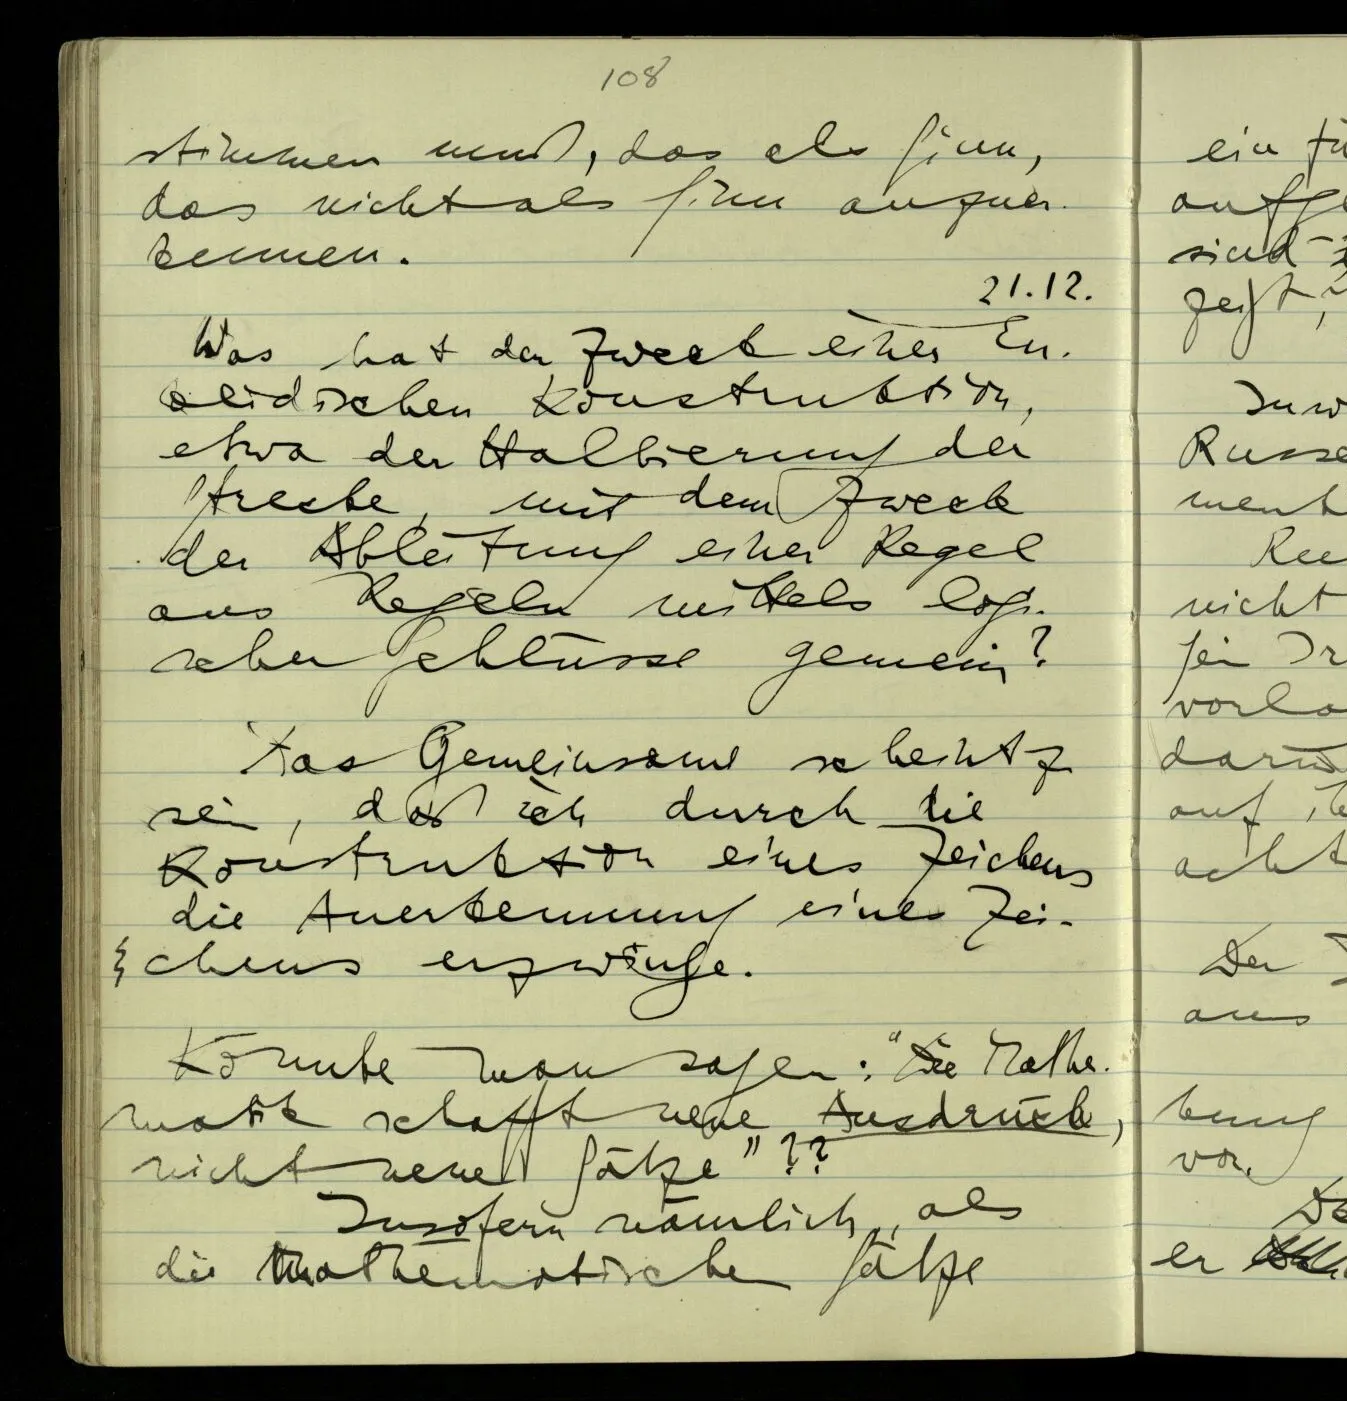 108
stimmen muß, das als Sinn,
das nicht als Sinn anzuer-
kennen.
21.12.
Was hat der Zweck einer Eu-
klidischen Konstruktion,
etwa der Halbierung der
Strecke, mit dem Zweck
der Ableitung einer Regel
aus Regeln mittels logi-
scher Schlüsse gemein?
Das Gemeinsame scheint z
sein, daß ich durch die
Konstruktion eines Zeichens
die Anerkennung eines Zei-
chens erzwinge.
Könnte man sagen: "Die Mathe-
matik schafft neue Ausdrücke,
nicht neue Sätze"??
Insofern nämlich, als
die mathematischen Sätze
ein
aufge
sind
zeigt,
Inw
Russe
ment
nicht
sein Ir
vorla
darü
auf ih
acht
Der
aus
kung
vor.
er